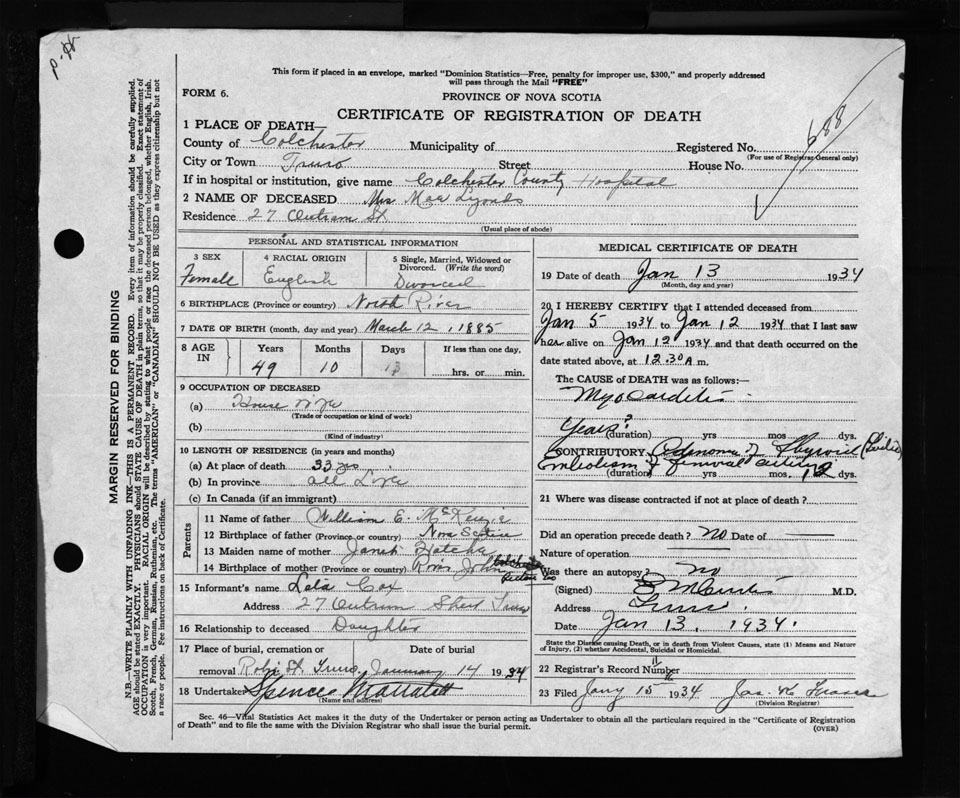 This form if placed in an envelope, marked "Dominion Statistics—Free, penalty for improper use, $300," and properly addressed
will pass through the Mail "FREE"
FORM 6.
PROVINCE OF NOVA SCOTIA
CERTIFICATE OF REGISTRATION OF DEATH
688
1 PLACE OF DEATH—
County of Colchester Municipality of Registered No.
(For use of Registrar General only)
City or Town Truro Street House No.
If in hospital or institution, give name Colchester County Hospital
2 NAME OF DECEASED Mrs Mae Lyonds
Residence 27 Outram St
(Usual place of abode)
MARGIN RESERVED FOR BINDING
N.B.—WRITE PLAINLY WITH UNFADING INK—THIS IS A PERMANENT RECORD. Every item of information should be carefully supplied.
AGE should be stated EXACTLY. PHYSICIANS should STATE CAUSE OF DEATH in plain terms, so that it may be properly classified. Exact statement of
OCCUPATION is very important. RACIAL ORIGIN will be described by stating to what people or race the deceased person belonged, whether English, Irish,
Scotch, French, German, Russian, Ruthenian, etc. The terms "AMERICAN" or "CANADIAN" SHOULD NOT BE USED as they express citizenship but not
a race or people. See instructions on back of Certificate.
PERSONAL AND STATISTICAL INFORMATION
3 SEX 4 RACIAL ORIGIN 5 Single, Married, Widowed or
Divorced. (Write the word)
Female English Divorced
6 BIRTHPLACE (Province or country) North River
7 DATE OF BIRTH (month, day and year) March 12, 1885
8 AGE IN Years Months Days If less than one day,
49 10 hrs. or min.
9 OCCUPATION OF DECEASED
(a) House Wife
(Trade or occupation or kind of work)
(b)
(Kind of industry)
10 LENGTH OF RESIDENCE (in years and months)
(a) At place of death 33 yrs.
(b) In province all Life
(c) In Canada (if an immigrant)
Parents
11 Name of father William E. McKenzie
12 Birthplace of father (Province or country) Nova Scotia
13 Maiden name of mother Janet
14 Birthplace of mother (Province or country) River John
15 Informant's name Lela Cox
Address 27 Outram Street Truro
16 Relationship to deceased Daughter
17 Place of burial, cremation or Date of burial
removal Robie St. Truro January 14 1934
18 Undertaker Spencer
(Name and address)
MEDICAL CERTIFICATE OF DEATH
19 Date of death Jan 13 1934
(Month, day and year)
20 I HEREBY CERTIFY that I attended deceased from
Jan 5 1934 to Jan 12 1934 that I last saw
her alive on Jan 12 1934 and that death occurred on the
date stated above, at 12.30 A m.
The CAUSE OF DEATH was as follows:—
Myocarditis
Years? (duration) yrs mos dys.
CONTRIBUTORY Adenoma of Thyroid
Embolism of femoral artery
(duration) yrs mos. 12 dys.
21 Where was disease contracted if not at place of death?
Did an operation precede death? No Date of
Nature of operation
Was there an autopsy? no
(Signed) M.D.
Address Truro.
Date Jan 13, 1934.
State the Disease causing Death, or in death from Violent Causes, state (1) Means and Nature
of Injury, (2) whether Accidental, Suicidal or Homicidal.
22 Registrar's Record Number 11
23 Filed Jany 15 1934 Jas. K Fraser
(Division Registrar)
Sec. 46—Vital Statistics Act makes it the duty of the Undertaker or person acting as Undertaker to obtain all the particulars required in the "Certificate of Registration
of Death" and to file the same with the Division Registrar who shall issue the burial permit.
(OVER)